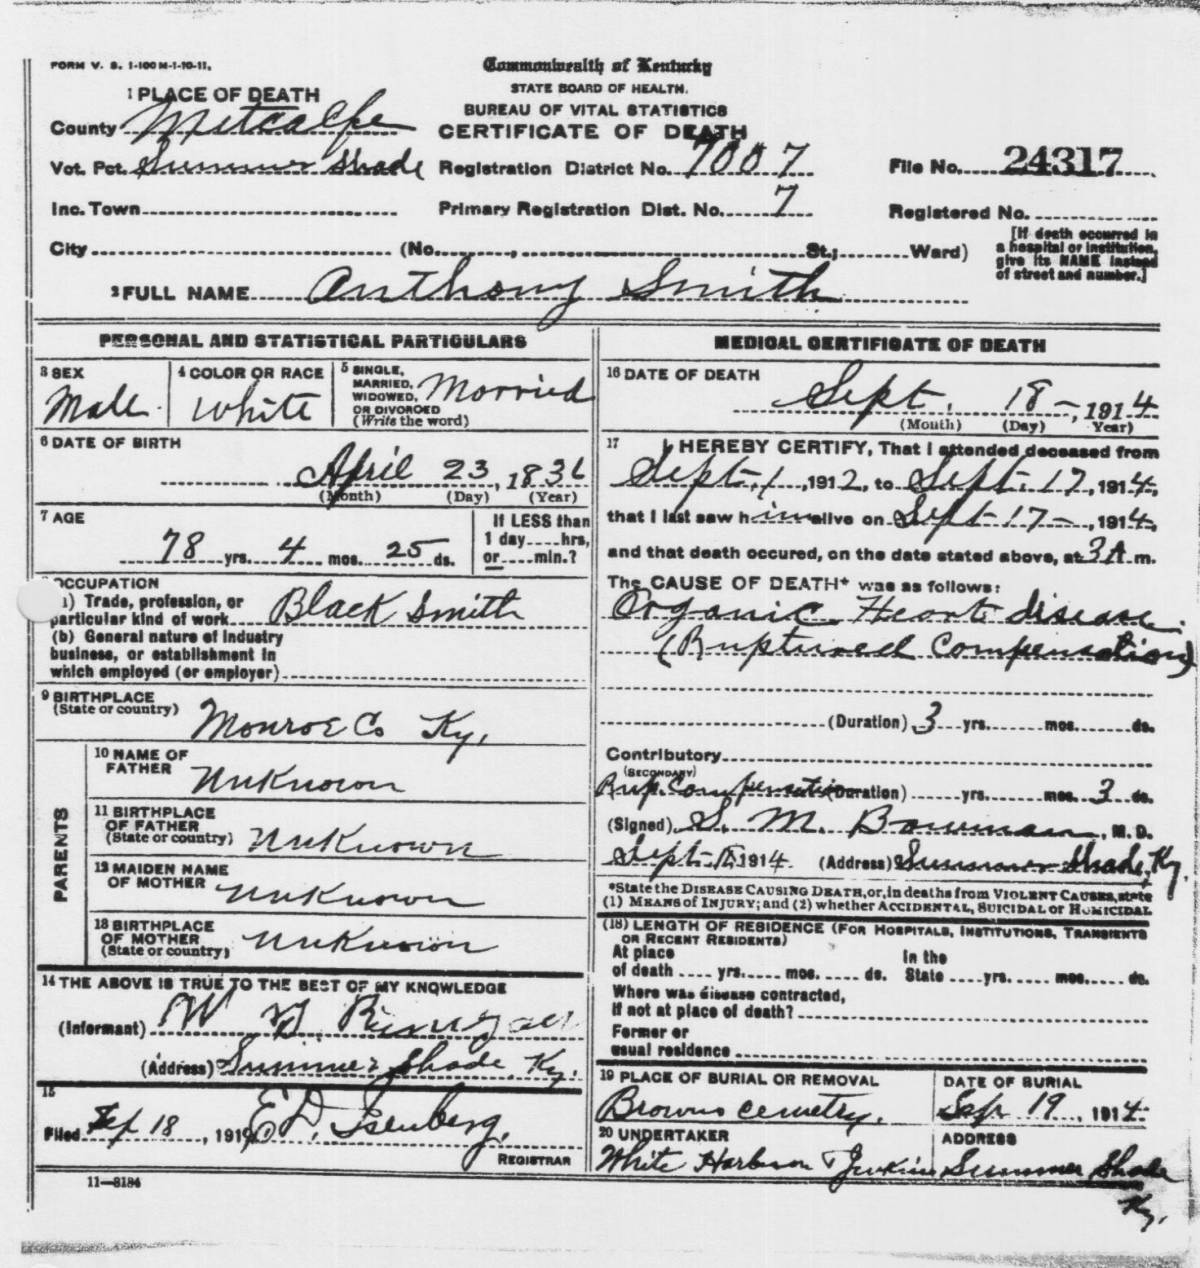 FORM V. S. 1-100M-1-10-11.
Commonwealth of Kentucky
STATE BOARD OF HEALTH.
BUREAU OF VITAL STATISTICS
CERTIFICATE OF DEATH
1 PLACE OF DEATH
County Metcalfe
Vot. Pct. Summer Shade Registration District No. 7007 File No. 24317
Inc. Town Primary Registration Dist. No. 7 Registered No.
City (No. , St.; Ward)
[If death occurred in
a hospital or institution,
give its NAME instead
of street and number.]
2 FULL NAME Anthony Smith
PERSONAL AND STATISTICAL PARTICULARS
3 SEX
Male
4 COLOR OR RACE
White
5 SINGLE,
MARRIED,
WIDOWED,
OR DIVORCED
(Write the word)
Morried
6 DATE OF BIRTH
April 23, 1836
(Month) (Day) (Year)
7 AGE
78 yrs. 4 mos. 25 ds.
If LESS than
1 day hrs,
or min.?
OCCUPATION
(a) Trade, profession, or
particular kind of work Black Smith
(b) General nature of industry
business, or establishment in
which employed (or employer)
9 BIRTHPLACE
(State or country)
Monroe Co Ky,
PARENTS
10 NAME OF
FATHER
Unknown
11 BIRTHPLACE
OF FATHER
(State or country)
Unknown
12 MAIDEN NAME
OF MOTHER
Unknown
13 BIRTHPLACE
OF MOTHER
(State or country)
Unknown
14 THE ABOVE IS TRUE TO THE BEST OF MY KNOWLEDGE
(Informant) W
(Address) Summer Shade, Ky.
15
Filed Sep 18, 191 E D. Isenberg,
REGISTRAR
11—8184
MEDICAL CERTIFICATE OF DEATH
16 DATE OF DEATH
Sept. 18-, 1914
(Month) (Day) Year)
17 I HEREBY CERTIFY, That I attended deceased from
Sept. 1, 1912, to Sept. 17, 1914,
that I last saw him alive on Sept 17-, 1914,
and that death occured, on the date stated above, at 3A m.
The CAUSE OF DEATH* was as follows:
Organic Heart disease.
(Ruptured Compensation)
(Duration) 3 yrs. mos. ds.
Contributory
(SECONDARY)
Rup. Compensation (Duration) yrs. mos. 3 ds.
(Signed) S. M. Bowman, M.D.
Sept. 1914. (Address) Summer Shade, Ky.
*State the DISEASE CAUSING DEATH, or, in deaths from VIOLENT CAUSES, state
(1) MEANS of INJURY; and (2) whether ACCIDENTAL, SUICIDAL or HOMICIDAL
(18) LENGTH OF RESIDENCE (FOR HOSPITALS, INSTITUTIONS, TRANSIENTS
OR RECENT RESIDENTS)
At place In the
of death yrs. mos. ds. State yrs. mos. ds.
Where was disease contracted,
If not at place of death?
Former or
usual residence
19 PLACE OF BURIAL OR REMOVAL
Browns cemetry.
DATE OF BURIAL
Sep 19, 1914
20 UNDERTAKER
White Harbison & Jenkins
ADDRESS
Summer Shade
Ky.